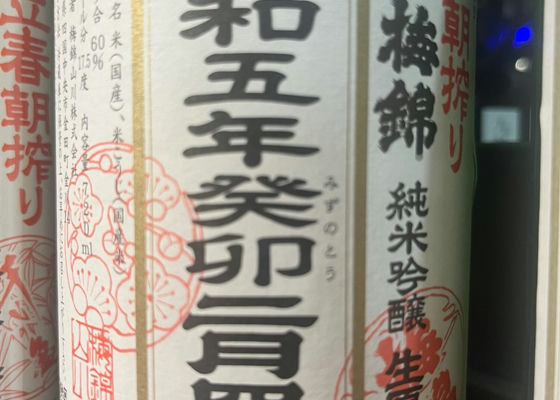 朝搾り
梅錦
純米吟醸 生
和五年癸卯二月四
みずのとう
名 米(国産)、米こうじ(国産米)
合 60%
ル分 17.5度 内容量 720ml
者 梅錦山川株式会社
県四国中央市金田町金
立春朝搾り
梅錦
山川